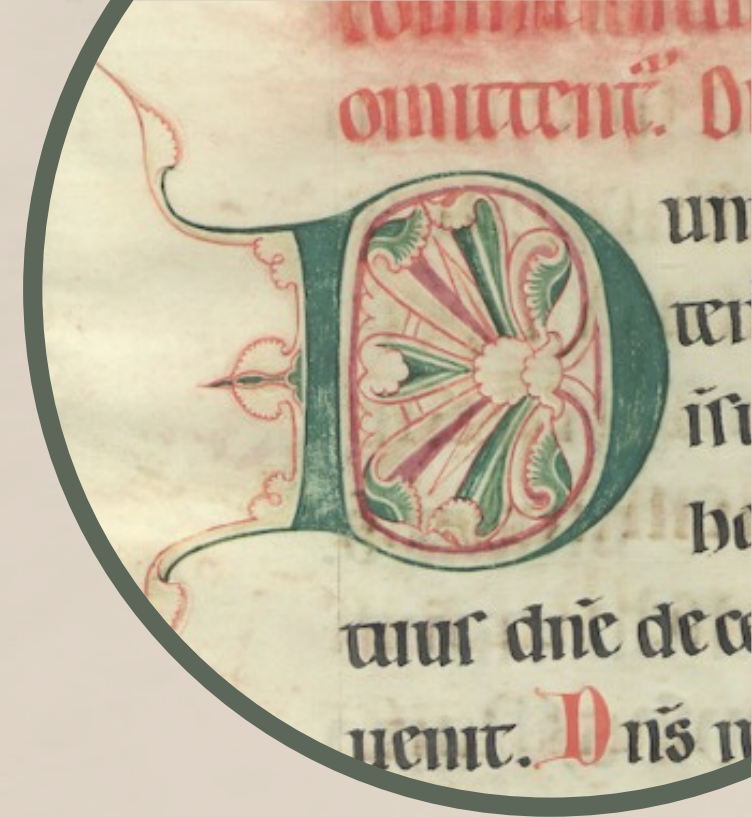 omittent̄. D
Dum
ten
īsu
ha
tuus dn̄e de ce
uenit. Dn̄s